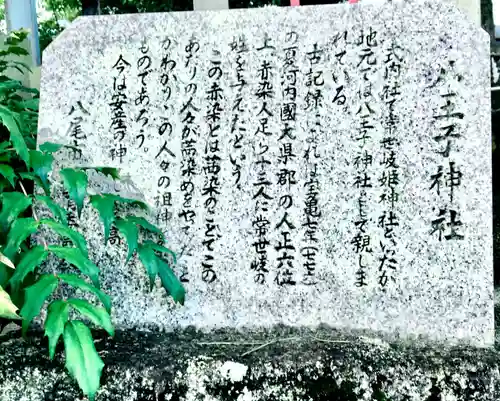 八王子神社
式内社で常世岐姫神社といたが
地元では八王子神社として親しま
れている。
古記録によれば宝亀七年(七七七)
の夏河内國大県郡の人正六位
上赤染人足ら十三人に常世岐の
姓を与えたという。
この赤染とは茜染のことでこの
あたりの人々が茜染めをやって
わかり、この人々の祖神
ものであろう。
今は安産の神
八尾市